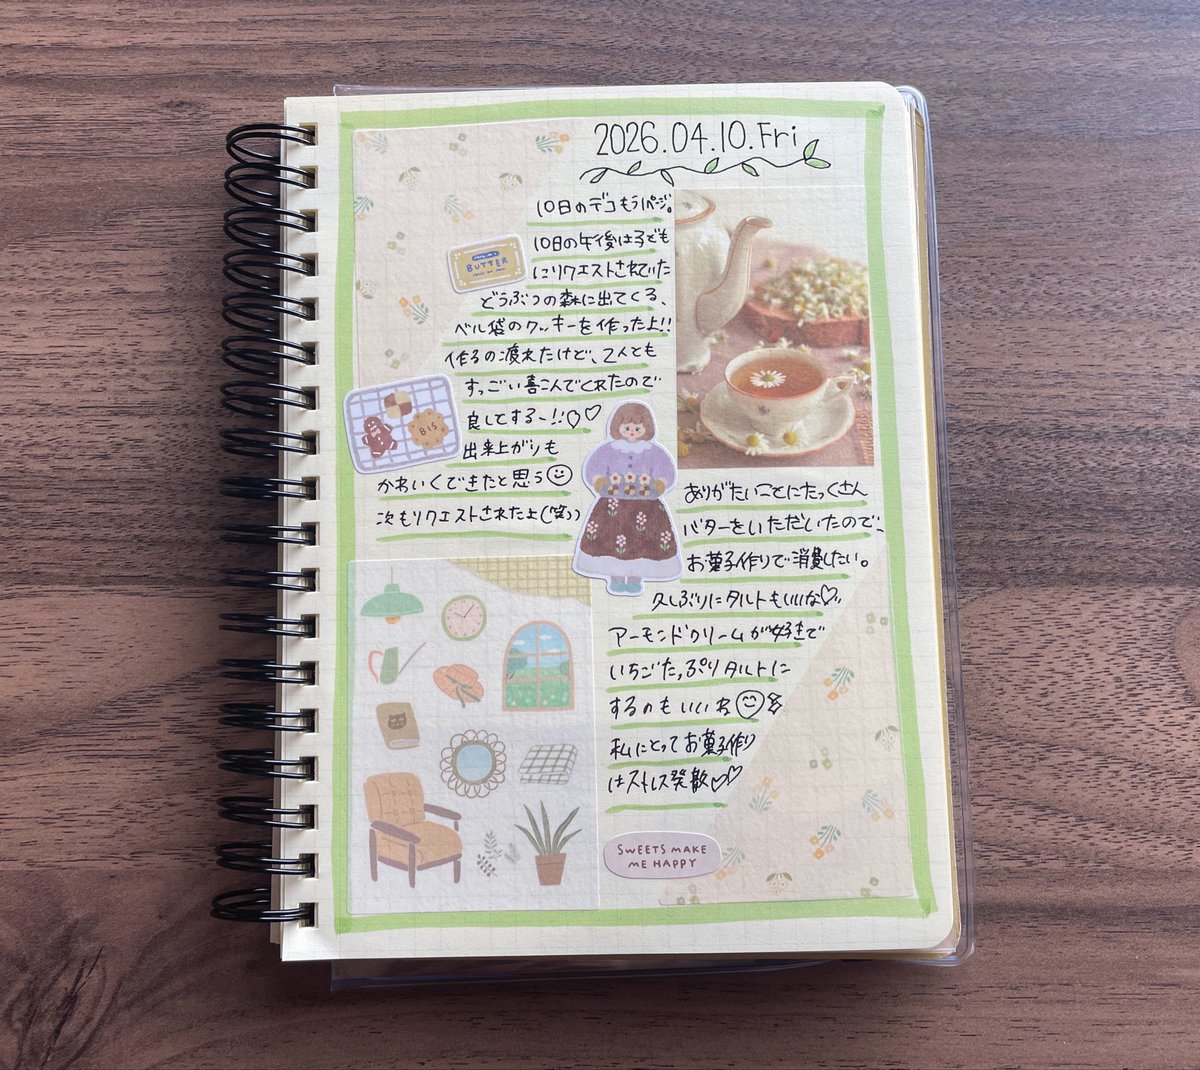 2026.04.10.Fri
10日のデコもう1ページ。
10日の午後は子ども
にリクエストされていた
どうぶつの森に出てくる、
ベル袋のクッキーを作ったよ!!
作るの疲れたけど、2人とも
すっごい喜こんでくれたので
良しとする〜!!
出来上がりも
かわいくできたと思う
次もリクエストされたよ(笑)
BUTTER
BIS
ありがたいことにたっくさん
バターをいただいたので、
お菓子作りで消費したい。
久しぶりにタルトもいいな
アーモンドクリームが好きで
いちごたっぷりタルトに
するのもいいね
私にとってお菓子作り
はストレス発散
SWEETS MAKE
ME HAPPY